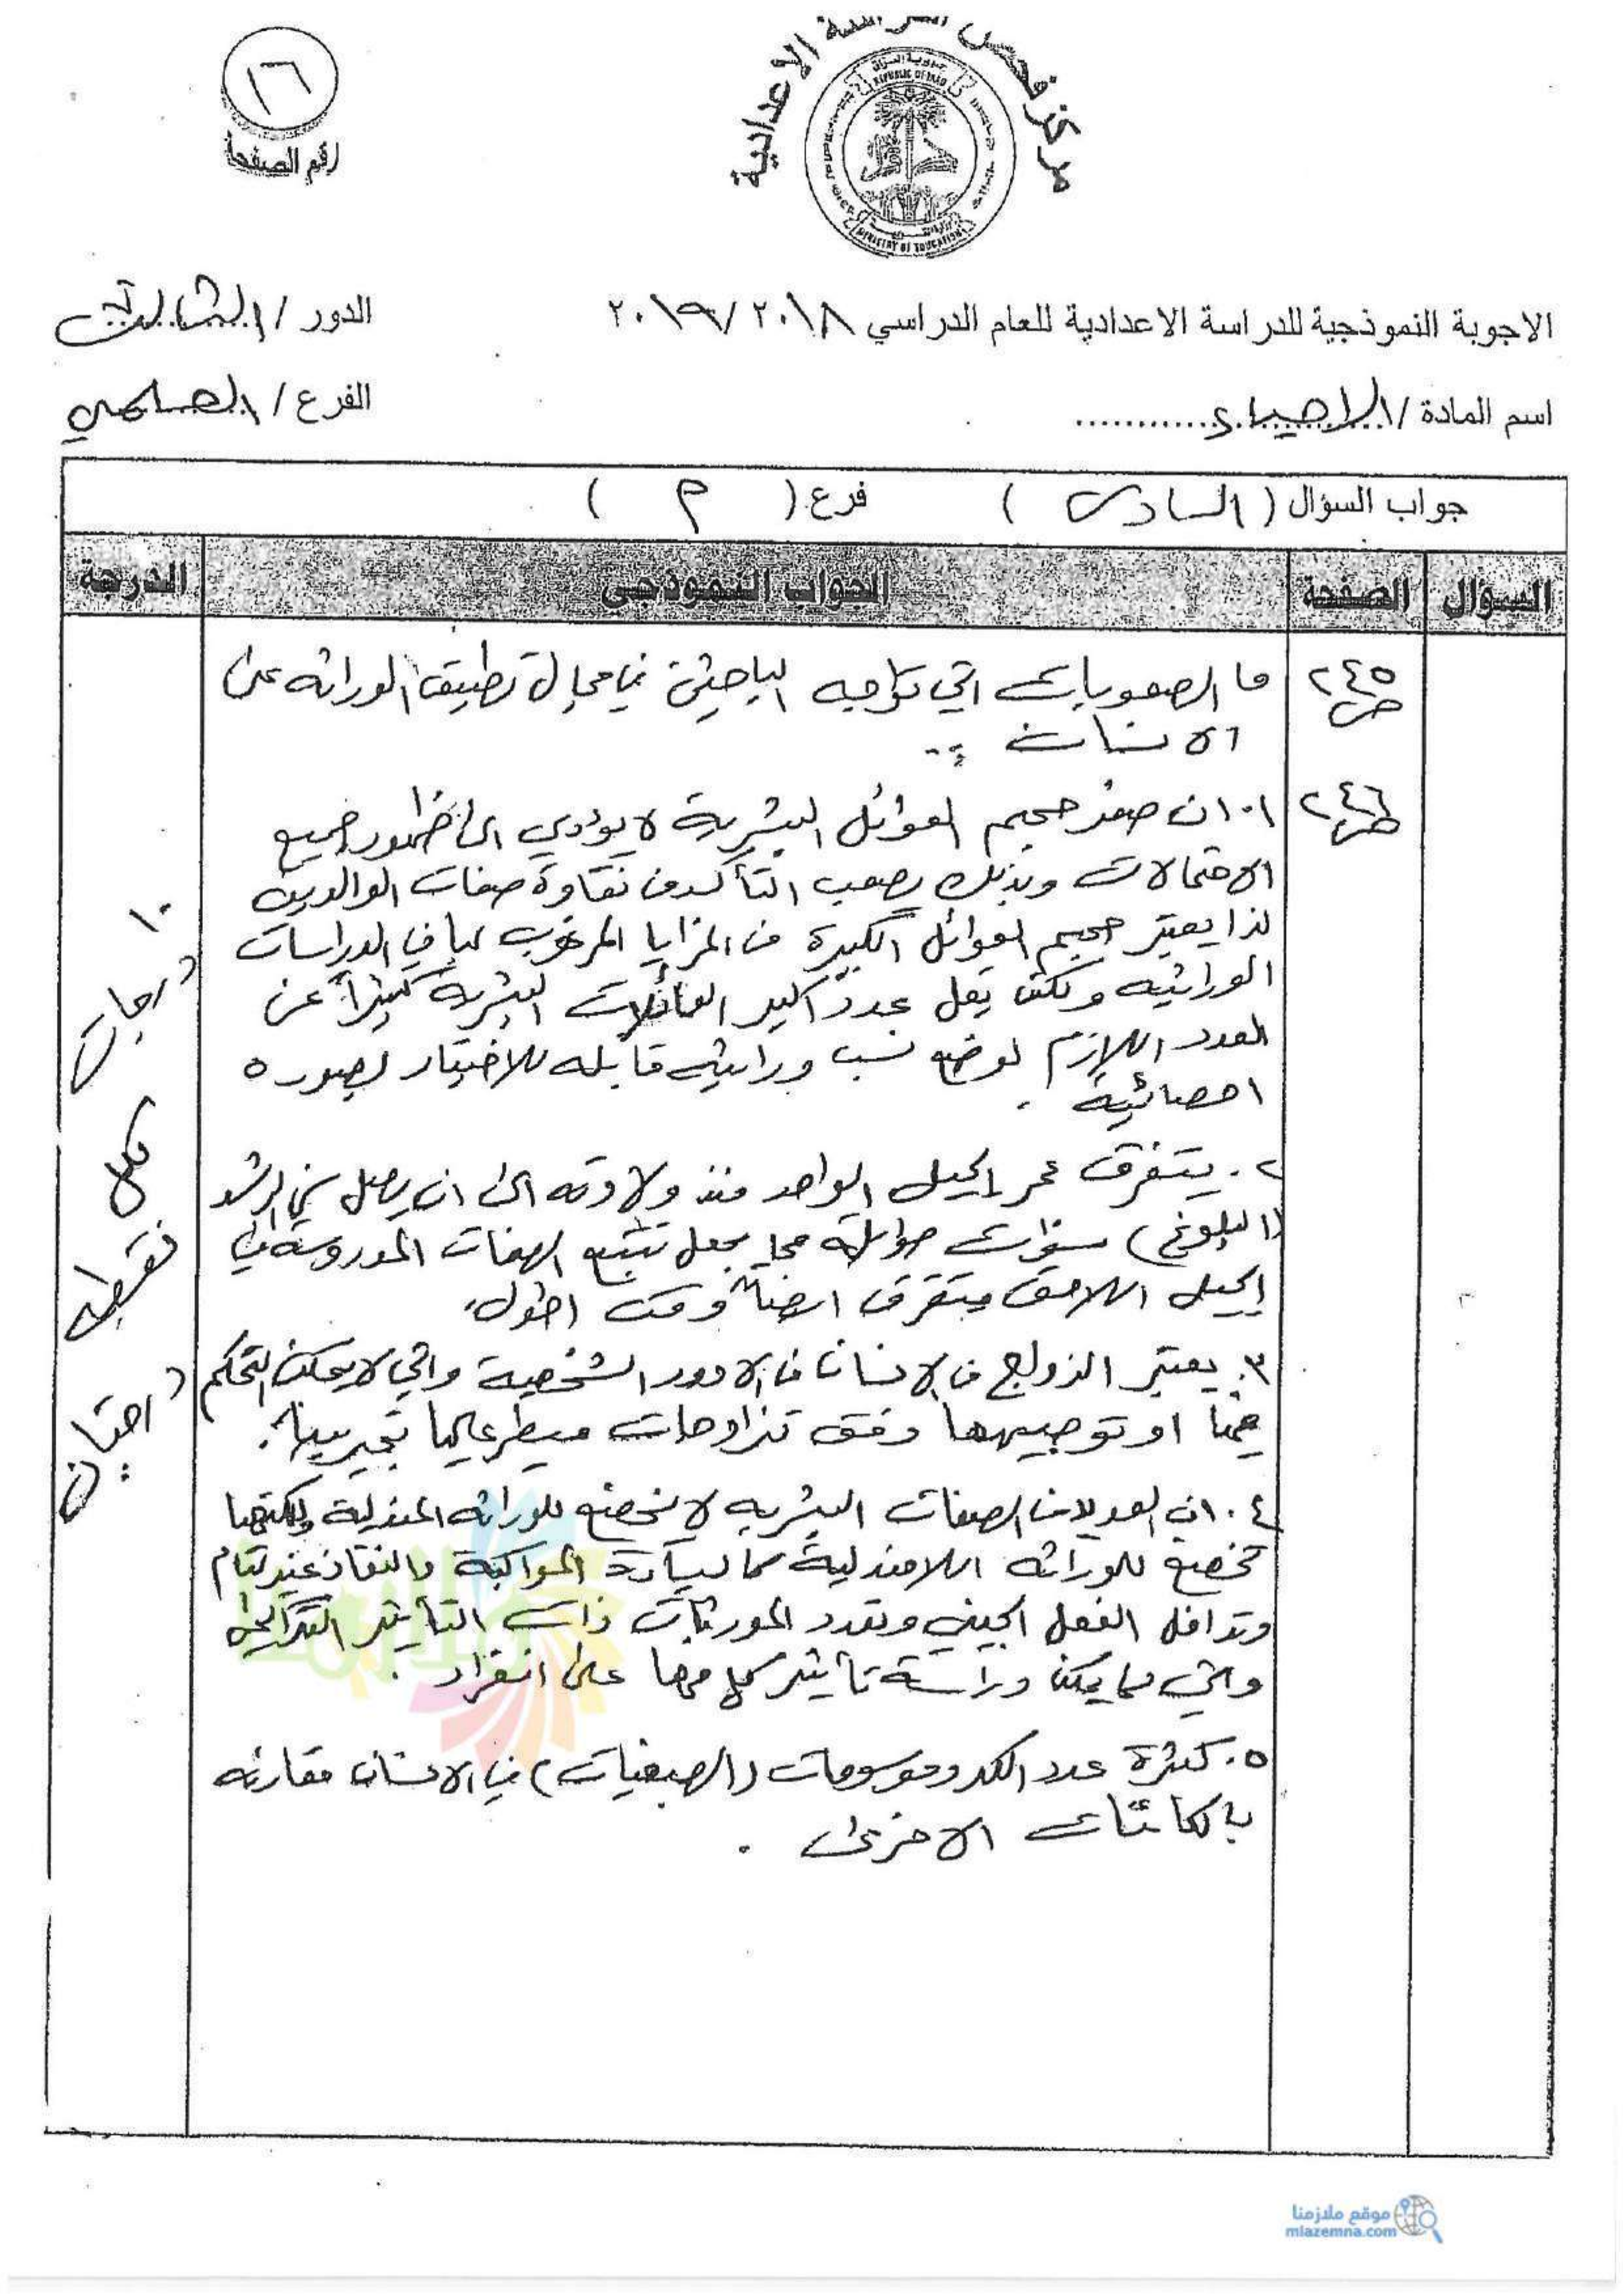 ١٦
رقم الصفحة
مركز فحص الدراسة الاعدادية
REPUBLIC OF IRAQ
MINISTRY OF EDUCATION
الاجوبة النموذجية للدراسة الاعدادية للعام الدراسي ٢٠١٨/٢٠١٩
الدور / الثالث
اسم المادة / الاحياء
الفرع / العلمي
جواب السؤال ( السادس ) فرع ( م )
السؤال الصفحة الجواب النموذجي الدرجة
ص ٢٤٥
ما الصعوبات التي تواجه الباحثين في مجال تطبيق الوراثه على
الانسان ؟
ص ٢٤٦
١. ان صغر حجم العوائل البشرية لا يؤدي الى ظهور جميع
الاحتمالات وبذلك يصعب التأكد من نقاوة صفات الوالدين
لذا يعتبر حجم العوائل الكبيرة من المزايا المرغوب بها في الدراسات
الوراثيه ولكن يقل عدد اكبر العائلات البشريه كثيراً عن
العدد اللازم لوضع نسب وراثيه قابله للاختبار بصوره
احصائية .
٢. يستغرق عمر الجيل الواحد منذ ولادته الى ان يصل سن الرشد
(البلوغ) سنوات طويلة مما يجعل تتبع الصفات المدروسة في
الجيل اللاحق يستغرق ايضاً وقت اطول.
٣. يعتبر الزواج في الانسان من الامور الشخصية والتي لا يمكن التحكم
بها او توجيهها وفق تزاوجات مسيطر عليها تجريبياً.
٤. ان العديد من الصفات البشريه لا تخضع للوراثه المندلية ولكنها
تخضع للوراثه اللامندلية كالسيادة المواكبة والنفاذ غير التام
وتداخل الفعل الجيني وتعدد المورثات ذات التأثير التراكمي
والتي لا يمكن دراسة تأثير كل منها على انفراد .
٥. كثرة عدد الكروموسومات (الصبغيات) في الانسان مقارنه
بالكائنات الاخرى .
١٠ درجات
لكل
نقطه
درجتان
موقع ملازمنا
mlazemna.com